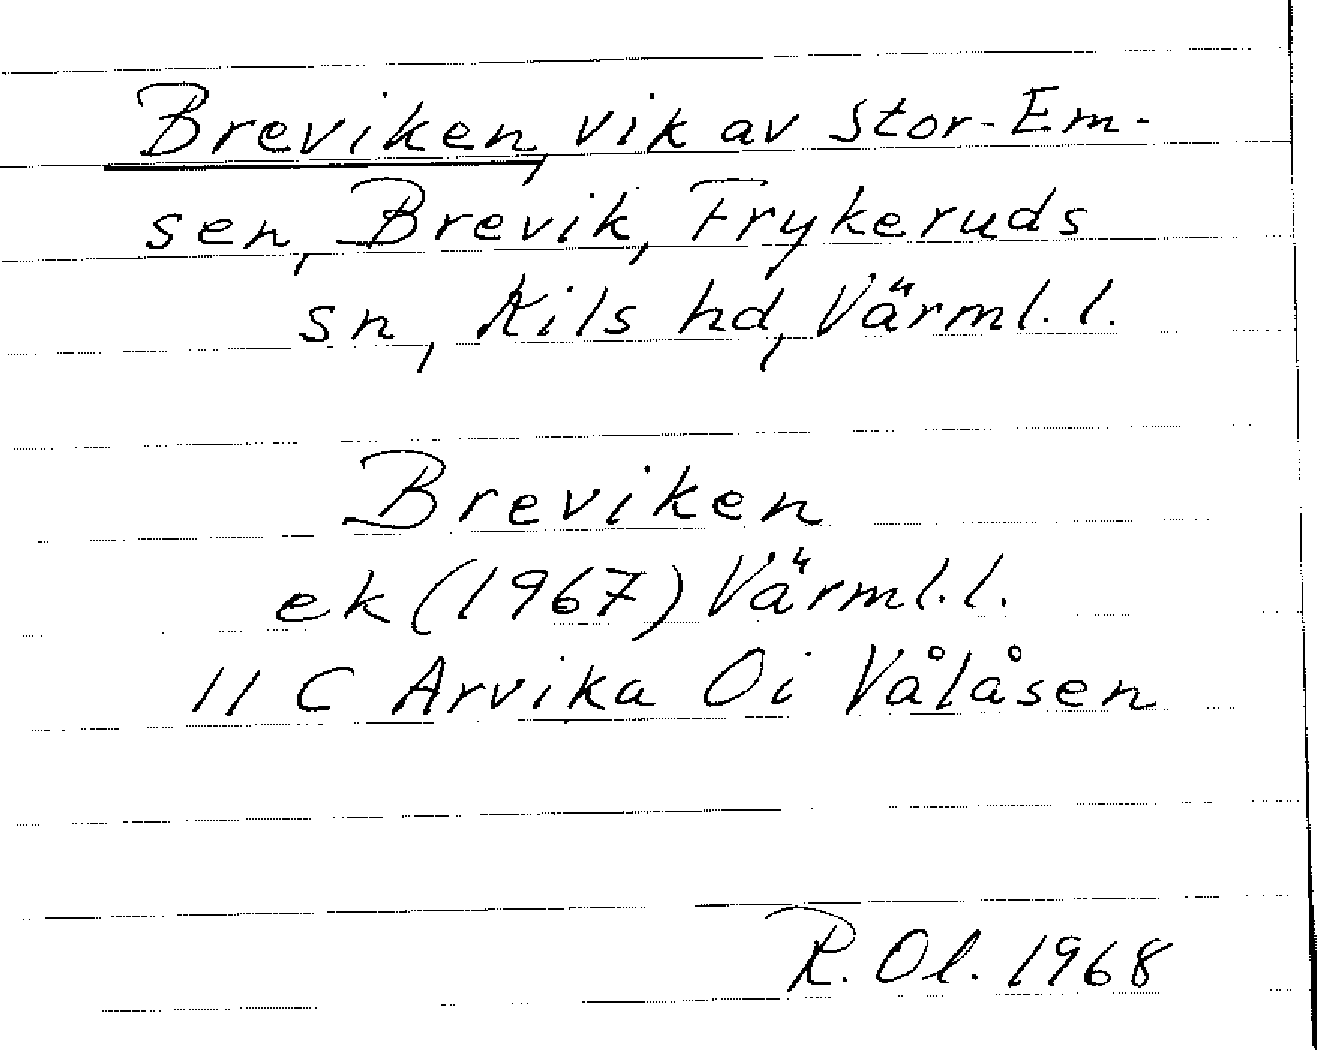 Breviken, vik av Stor-Em-
sen, Brevik, Frykeruds
sn, Kils hd, Värml. l.
Breviken
ek (1967) Värml. l.
11 C Arvika 0i Vålåsen
R. Ol. 1968